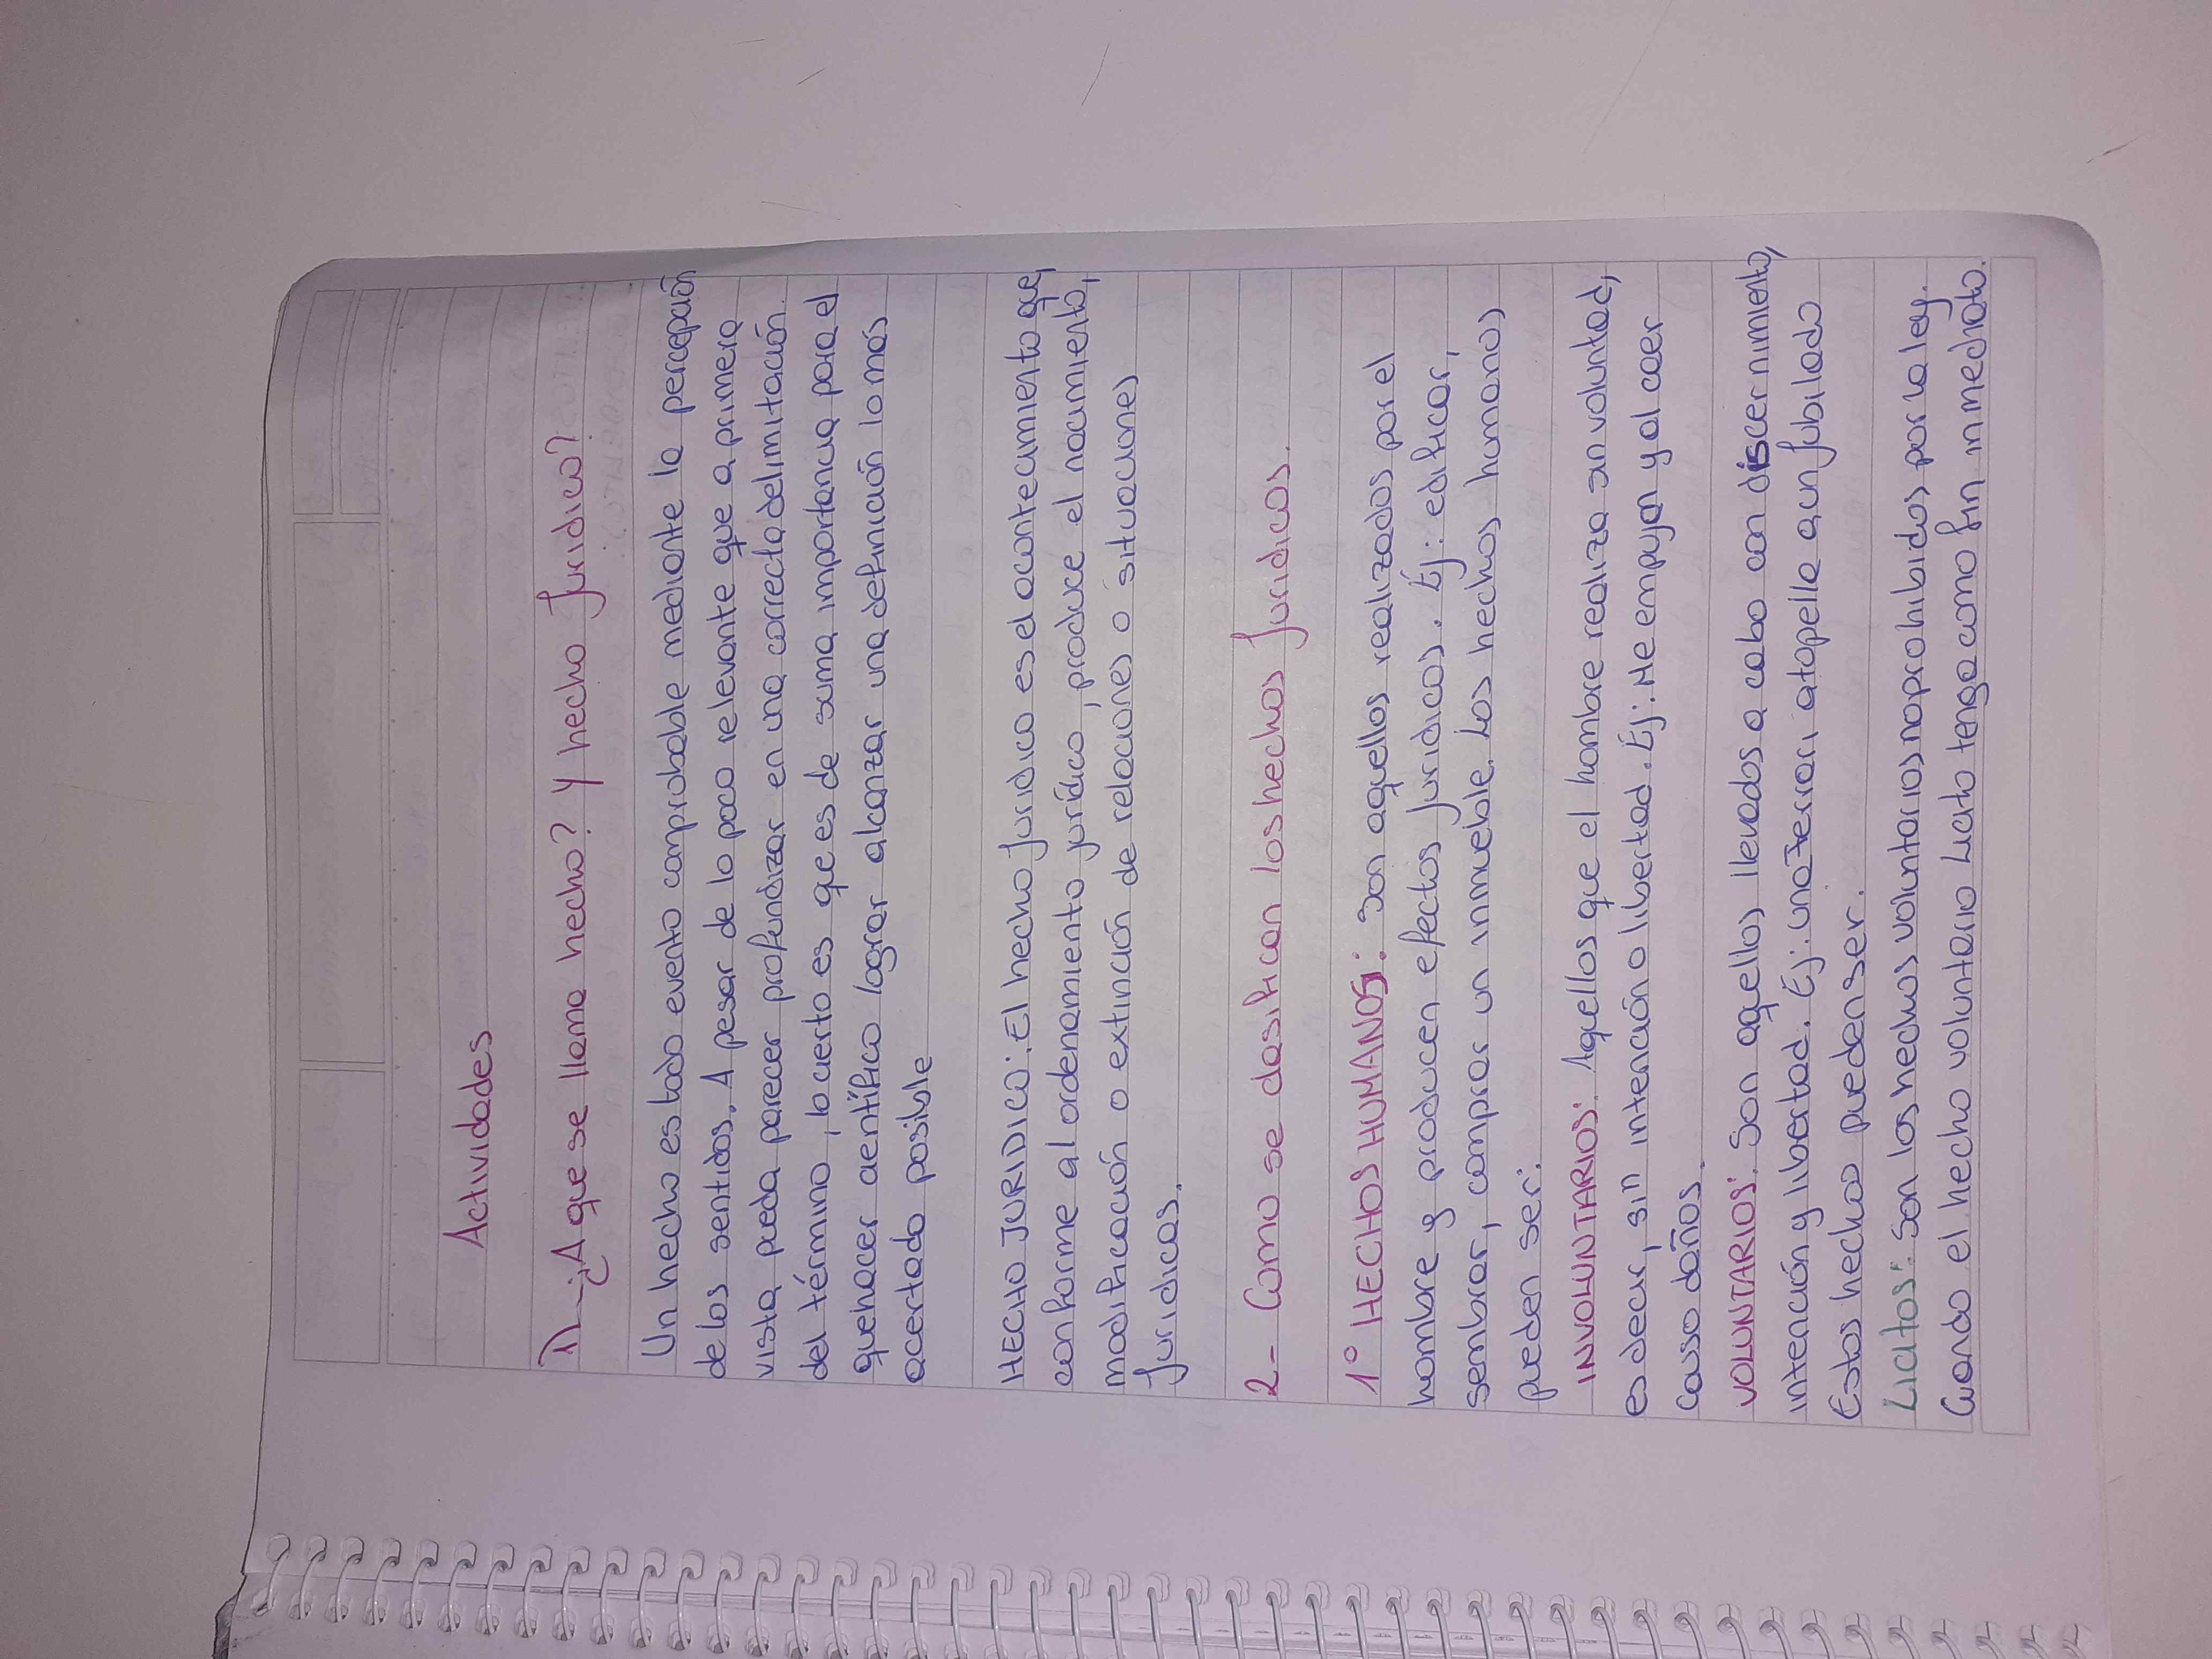 Actividades
1)-¿A que se llama hecho? Y hecho Juridico?
Un hecho es todo evento comprobable mediante la percepción
de los sentidos. A pesar de lo poco relevante que a primera
vista pueda parecer profundizar en una correcta delimitación
del término, lo cierto es que es de suma importancia para el
quehacer científico lograr alcanzar una definición lo mas
acertada posible
HECHO JURIDICO: El hecho Juridico es el acontecimiento que,
conforme al ordenamiento jurídico, produce el nacimiento,
modificación o extinción de relaciones o situaciones
Juridicas.
2- Como se clasifican los hechos Juridicos.
1° HECHOS HUMANOS: Son aquellos realizados por el
hombre y producen efectos Juridicos. Ej: edificar,
sembrar, comprar un inmueble. Los hechos humanos
pueden ser:
INVOLUNTARIOS: Aquellos que el hombre realiza sin voluntad,
es decir, sin intención o libertad. Ej: Me empujan y al caer
causo daños.
VOLUNTARIOS: Son aquellos llevados a cabo con discernimiento,
intención y libertad. Ej: una atopella a un Jubilado
Estos hechos pueden ser.
Licitos: Son los hechos voluntarios no prohibidos por la ley.
Cuando el hecho voluntario Licito tenga como fin inmediato.